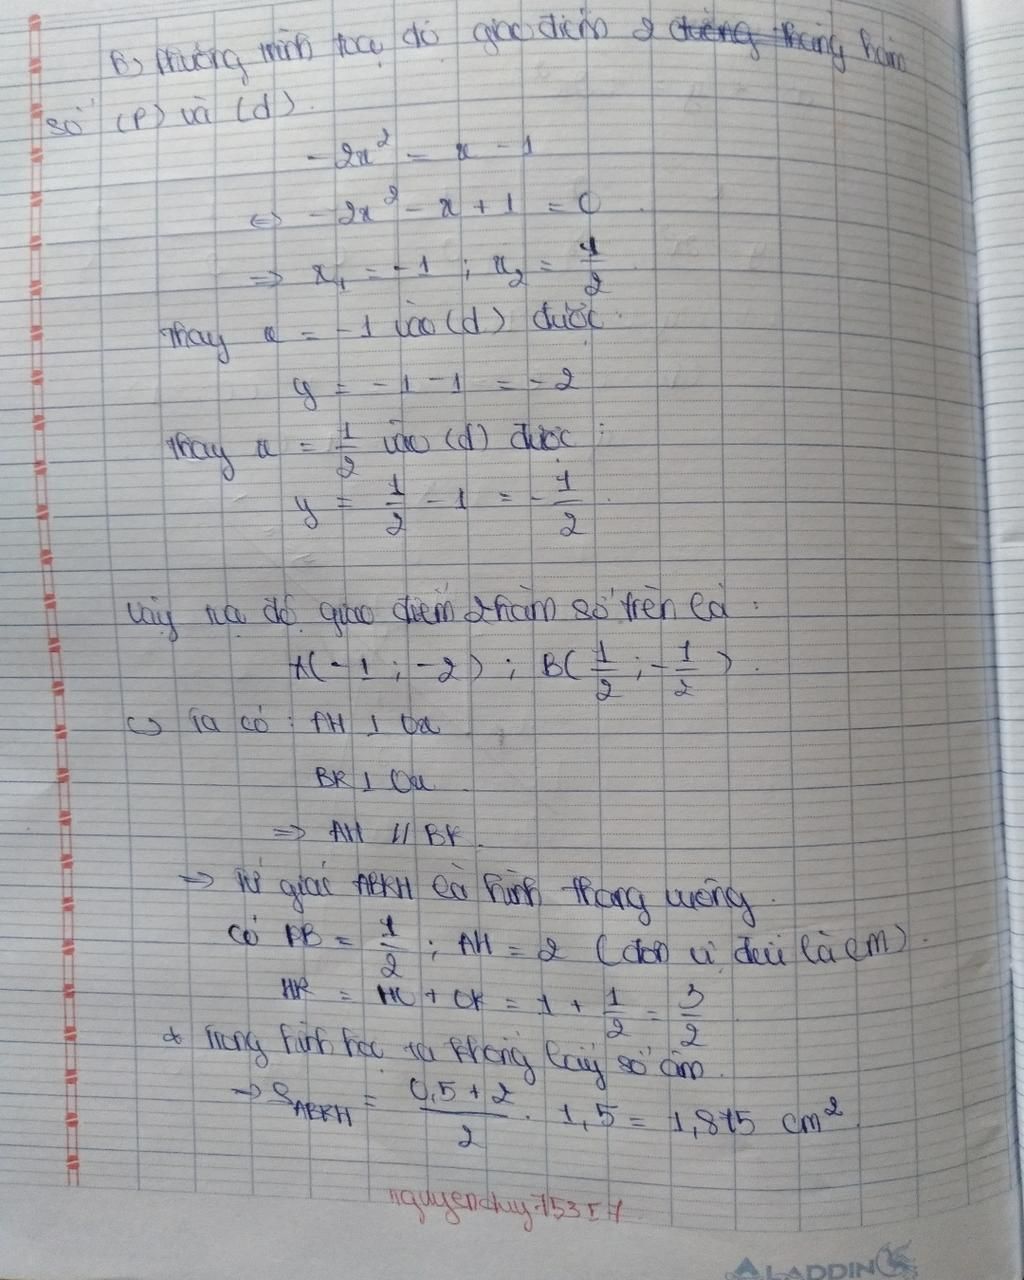 b) Phương trình toạ độ giao điểm 2 hàm
số (P) và (d).
-2x² = x - 1
<=> -2x² - x + 1 = 0
=> x₁ = -1 ; x₂ = 1/2
Thay x = -1 vào (d) được:
y = -1 - 1 = -2
Thay x = 1/2 vào (d) được:
y = 1/2 - 1 = -1/2.
Vậy toạ độ giao điểm 2 hàm số trên là:
A(-1; -2) ; B(1/2 ; -1/2).
c) Ta có: AH ⊥ Ox
BK ⊥ Ox
=> AH // BK.
=> Tứ giác ABKH là hình thang vuông.
có KB = 1/2 ; AH = 2 (đơn vị đều là cm).
HK = HO + OK = 1 + 1/2 = 3/2
* Trong hình học ta không lấy số âm.
=> S_ABKH = (0,5 + 2)/2 . 1,5 = 1,875 cm²
ALADDIN